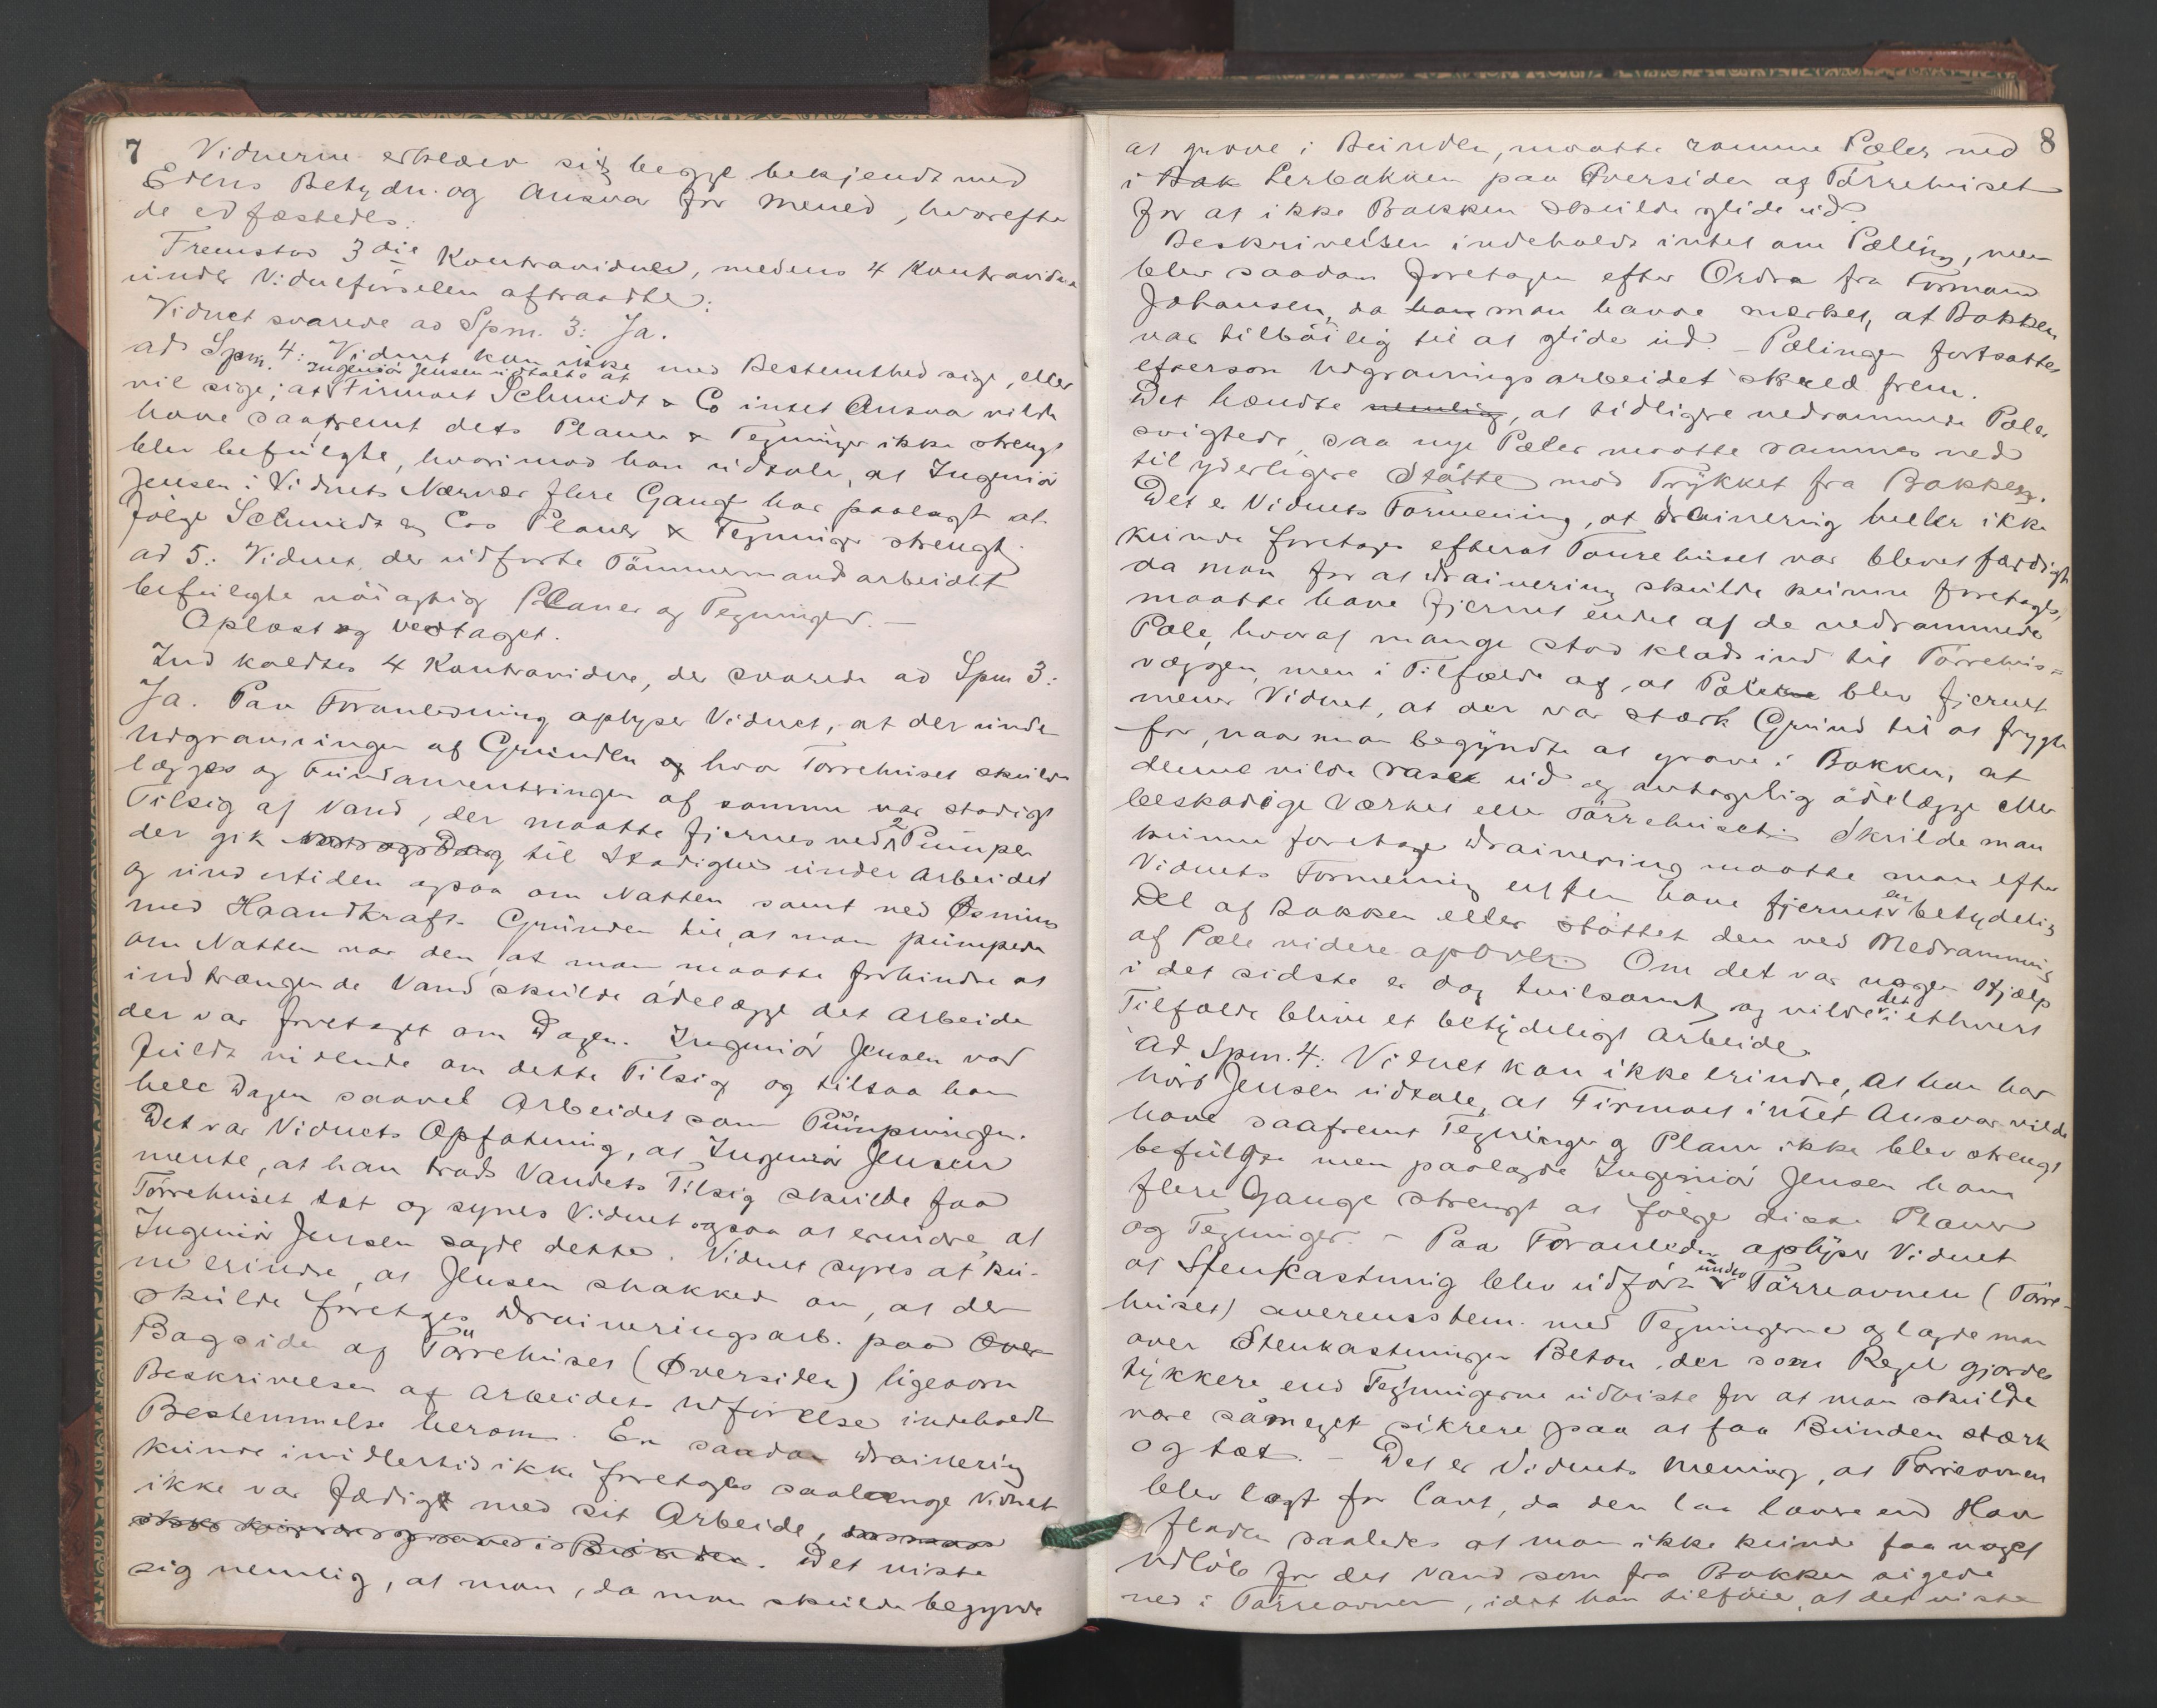 7
Vidnerne erklærer sig begge bekjendt med
Edens Betydn. og Ansvar for Mened, hvorefter
de edfæstedes.
Fremstod 3die Kontravidne, medens 4 Kontravidne
under Vidneførselen aftraadte:
Vidnet svarede ad Spm. 3: Ja.
ad Spm. 4: Vidnet kan ikke med Bestemthed sige, eller
Ingeniør Jensen udtalte at
vil sige, at Firmaet Schmidt & Co intet Ansvar vilde
have saafremt dets Planer & Tegninger ikke strengt
blev befulgte, hvorimod han udtaler, at Ingeniør
Jensen i Vidnets Nærvær flere Gange har paalagt at
følge Schmidt og Cos Planer & Tegninger strengt.
ad 5: Vidnet, der udførte Tømmermandsarbeidet
befulgte nøiagtig Planer og Tegninger. –
Oplæst og vedtaget.
Ind kaldtes 4 Kontravidne, der svarede ad Spm 3:
Ja. Paa Foranledning oplyser Vidnet, at der under
Udgravningen af Grunden og hvor Tørrehuset skulde
lægges og Fundamenteringen af samme var stadigt
Tilsig af Vand, der maatte fjernes ved 2 Pumper
der gik Nat og Dag til Stadighed under Arbeidet
og undertiden ogsaa om Natten samt ved Øsning
med Haandkraft. Grunden til, at man pumpede
om Natten var den, at man maatte forhindre at
indtrængende Vand skulde ødelægge det Arbeide
der var foretaget om Dagen. Ingeniør Jensen var
fuldt vidende om dette Tilsig og tilsaa han
hele Dagen saavel Arbeidet som Pumpningen.
Det var Vidnets Opfatning, at Ingeniør Jensen
mente, at han trods Vandets Tilsig skulde faa
Tørrehuset tæt og synes Vidnet ogsaa at erindre, at
Ingeniør Jensen sagde dette. Vidnet synes at kun-
ne erindre, at Jensen snakked om, at der
skulde foretages Draineringsarb. paa Over
Bagsiden af Tørrehuset (Øversiden) ligesom
Beskrivelsen af Arbeidets Udførelse indeholdt
Bestemmelse herom. En saadan Drainering
kunde imidlertid ikke foretages saalænge Vidnet
ikke var færdigt med sit Arbeide, da man
ikke kunde grave i Bunden. Det viste
sig nemlig, at man, da man skulde begynde
8
at grave i Bunden, maatte ramme Pæler ned
i Bak Lerbakken paa Øversiden af Tørrehuset
for at ikke Bakken skulde glide ud.
Beskrivelsen indeholdt intet om Pæling, men
blev saadan foretagen efter Ordre fra Formand
Johansen, da han man havde mærket, at Bakken
var tilbøilig til at glide ud. – Pælingen fortsattes
eftersom Udgravningsarbeidet skred frem.
Det hændte nemlig, at tidligere nedrammede Pæler
svigtede, saa nye Pæler maatte rammes ned
til yderligere Støtte mod Trykket fra Bakken.
Det er Vidnets Formening, at Drainering heller ikke
kunde foretages efterat Tørrehuset var blevet færdigt
da man for at Drainering skulde kunne foretages,
maatte have fjernet endel af de nedrammede
Pæle, hvoraf mange stod klods ind til Tørrehus-
væggen, men i Tilfælde af, at Pælene blev fjernet
mener Vidnet, at der var stærk Grund til at frygte
for, naar man begyndte at grave i Bakken, at
denne vilde rase ud og antagelig ødelægge eller
beskadige Værket eller Tørrehuset. Skulde man
kunne foretage Drainering maatte man efter
Vidnets Formening enten have fjernet en betydelig
Del af Bakken eller støttet den ved Nedramming
af Pæle videre opover. Om det var nogen Hjælp
i det sidste er dog tvilsomt og vilde det i ethvert
Tilfælde blive et betydeligt Arbeide.
Ad Spm. 4: Vidnet kan ikke erindre, at han har
hørt Jensen udtale, at Firmaet intet Ansvar vilde
have saafremt Tegninger og Planer ikke blev strengt
befulgte men paalagde Ingeniør Jensen ham
flere Gange strengt at følge disse Planer
og Tegninger. – Paa Foranledn. oplyser Vidnet
at Stenkastning blev udført under Tørreovnen (Tørre-
huset) overensstem. med Tegningerne og lagde man
over Stenkastningen Beton, der som Regel gjordes
tykkere end Tegningerne udviste for at man skulde
være såmeget sikrere paa at faa Bunden stærk
og tæt. – Det er Vidnets Mening, at Tørreovnen
blev lagt for lavt, da den laa lavere end Hav
fladen saaledes at man ikke kunde faa noget
Udløb for det Vand som fra Bakken sigede
ned i Tørreovnen, idet han tilføier, at det viste